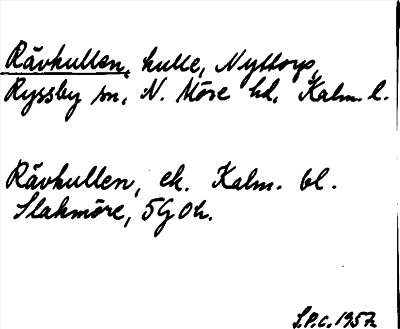 Rävkullen, kulle, Nyttorp,
Ryssby sn, N. Möre hd, Kalm. l.
Rävkullen, ek. Kalm. bl.
Slakmöre, 5G0h.
S.P.C. 1957